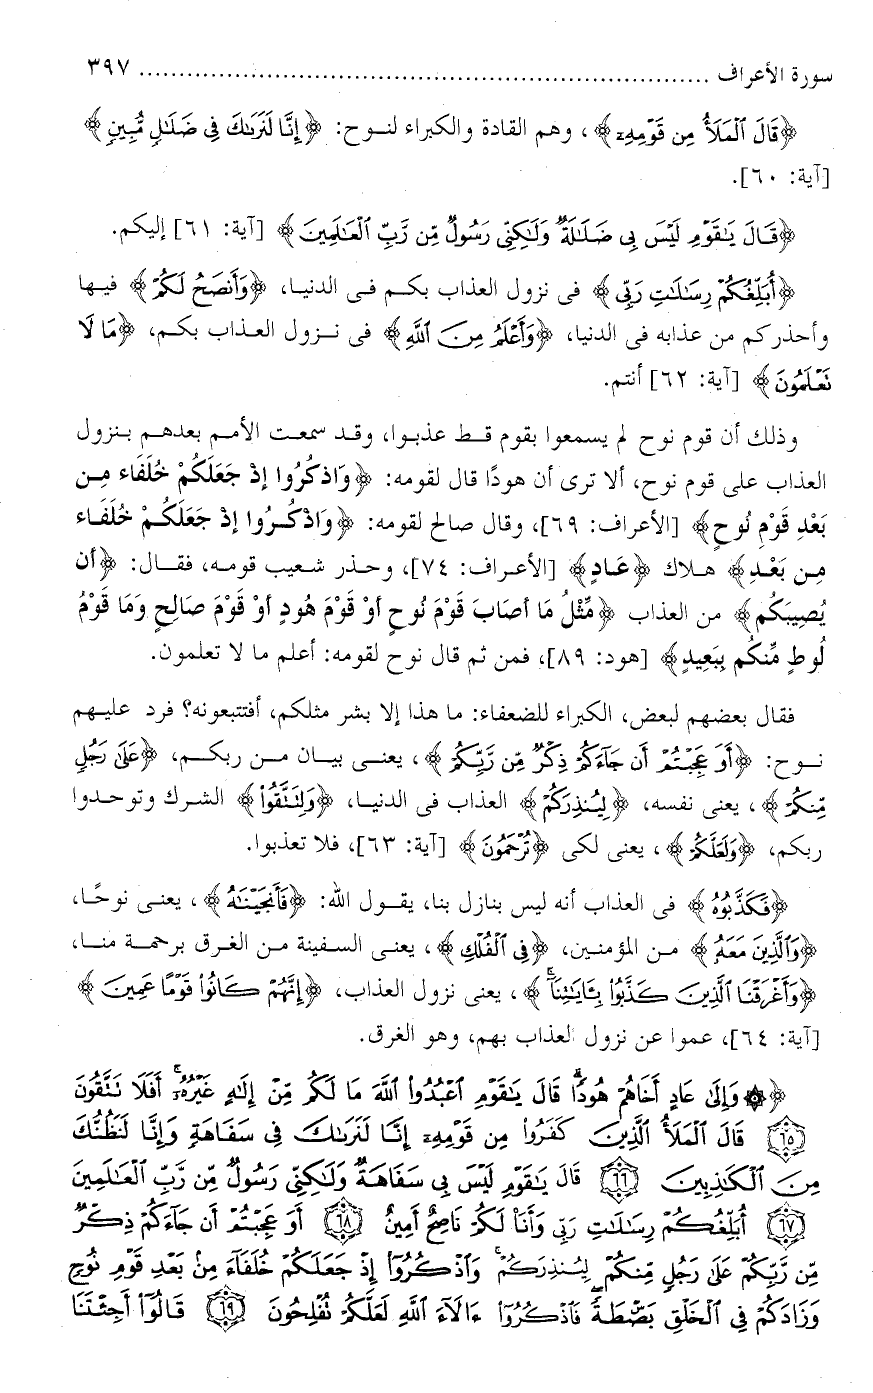 سورة الأعراف ................................................................ ٣٩٧
﴿قَالَ ٱلْمَلَأُ مِن قَوْمِهِۦ﴾، وهم القادة والكبراء لنوح: ﴿إِنَّا لَنَرَىٰكَ فِى ضَلَٰلٍ مُّبِينٍ﴾
[آية: ٦٠].
﴿قَالَ يَٰقَوْمِ لَيْسَ بِى ضَلَٰلَةٌ وَلَٰكِنِّى رَسُولٌ مِّن رَّبِّ ٱلْعَٰلَمِينَ﴾ [آية: ٦١] إليكم.
﴿أُبَلِّغُكُمْ رِسَٰلَٰتِ رَبِّى﴾ فى نزول العذاب بكم فى الدنيا، ﴿وَأَنصَحُ لَكُمْ﴾ فيها
وأحذركم من عذابه فى الدنيا، ﴿وَأَعْلَمُ مِنَ ٱللَّهِ﴾ فى نزول العذاب بكم، ﴿مَا لَا
تَعْلَمُونَ﴾ [آية: ٦٢] أنتم.
وذلك أن قوم نوح لم يسمعوا بقوم قط عذبوا، وقد سمعت الأمم بعدهم بنزول
العذاب على قوم نوح، ألا ترى أن هودًا قال لقومه: ﴿وَاذكُرُوا إِذْ جَعَلَكُمْ خُلَفَاء مِن
بَعْدِ قَوْمِ نُوحٍ﴾ [الأعراف: ٦٩]، وقال صالح لقومه: ﴿وَاذْكُرُوا إِذْ جَعَلَكُمْ خُلَفَاء
مِن بَعْدِ﴾ هلاك ﴿عَادٍ﴾ [الأعراف: ٧٤]، وحذر شعيب قومه، فقال: ﴿أَن
يُصِيبَكُم﴾ من العذاب ﴿مِّثْلُ مَا أَصَابَ قَوْمَ نُوحٍ أَوْ قَوْمَ هُودٍ أَوْ قَوْمَ صَالِحٍ وَمَا قَوْمُ
لُوطٍ مِّنكُم بِبَعِيدٍ﴾ [هود: ٨٩]، فمن ثم قال نوح لقومه: أعلم ما لا تعلمون.
فقال بعضهم لبعض، الكبراء للضعفاء: ما هذا إلا بشر مثلكم، أفتتبعونه؟ فرد عليهم
نوح: ﴿أَوَعَجِبْتُمْ أَن جَآءَكُمْ ذِكْرٌ مِّن رَّبِّكُمْ﴾، يعنى بيان من ربكم، ﴿عَلَىٰ رَجُلٍ
مِّنكُمْ﴾، يعنى نفسه، ﴿لِيُنذِرَكُمْ﴾ العذاب فى الدنيا، ﴿وَلِتَتَّقُوا۟﴾ الشرك وتوحدوا
ربكم، ﴿وَلَعَلَّكُمْ﴾، يعنى لكى ﴿تُرْحَمُونَ﴾ [آية: ٦٣]، فلا تعذبوا.
﴿فَكَذَّبُوهُ﴾ فى العذاب أنه ليس بنازل بنا، يقول الله: ﴿فَأَنجَيْنَٰهُ﴾، يعنى نوحًا،
﴿وَٱلَّذِينَ مَعَهُۥ﴾ من المؤمنين، ﴿فِى ٱلْفُلْكِ﴾، يعنى السفينة من الغرق برحمة منا،
﴿وَأَغْرَقْنَا ٱلَّذِينَ كَذَّبُوا۟ بِـَٔايَٰتِنَآ﴾، يعنى نزول العذاب، ﴿إِنَّهُمْ كَانُوا۟ قَوْمًا عَمِينَ﴾
[آية: ٦٤]، عموا عن نزول العذاب بهم، وهو الغرق.
﴿۞ وَإِلَىٰ عَادٍ أَخَاهُمْ هُودًا قَالَ يَٰقَوْمِ ٱعْبُدُوا۟ ٱللَّهَ مَا لَكُم مِّنْ إِلَٰهٍ غَيْرُهُۥٓ أَفَلَا تَتَّقُونَ
﴿٦٥﴾ قَالَ ٱلْمَلَأُ ٱلَّذِينَ كَفَرُوا۟ مِن قَوْمِهِۦٓ إِنَّا لَنَرَىٰكَ فِى سَفَاهَةٍ وَإِنَّا لَنَظُنُّكَ
مِنَ ٱلْكَٰذِبِينَ ﴿٦٦﴾ قَالَ يَٰقَوْمِ لَيْسَ بِى سَفَاهَةٌ وَلَٰكِنِّى رَسُولٌ مِّن رَّبِّ ٱلْعَٰلَمِينَ
﴿٦٧﴾ أُبَلِّغُكُمْ رِسَٰلَٰتِ رَبِّى وَأَنَا۠ لَكُمْ نَاصِحٌ أَمِينٌ ﴿٦٨﴾ أَوَعَجِبْتُمْ أَن جَآءَكُمْ ذِكْرٌ
مِّن رَّبِّكُمْ عَلَىٰ رَجُلٍ مِّنكُمْ لِيُنذِرَكُمْ وَٱذْكُرُوٓا۟ إِذْ جَعَلَكُمْ خُلَفَآءَ مِنۢ بَعْدِ قَوْمِ نُوحٍ
وَزَادَكُمْ فِى ٱلْخَلْقِ بَصْۜطَةً فَٱذْكُرُوٓا۟ ءَالَآءَ ٱللَّهِ لَعَلَّكُمْ تُفْلِحُونَ ﴿٦٩﴾ قَالُوٓا۟ أَجِئْتَنَا